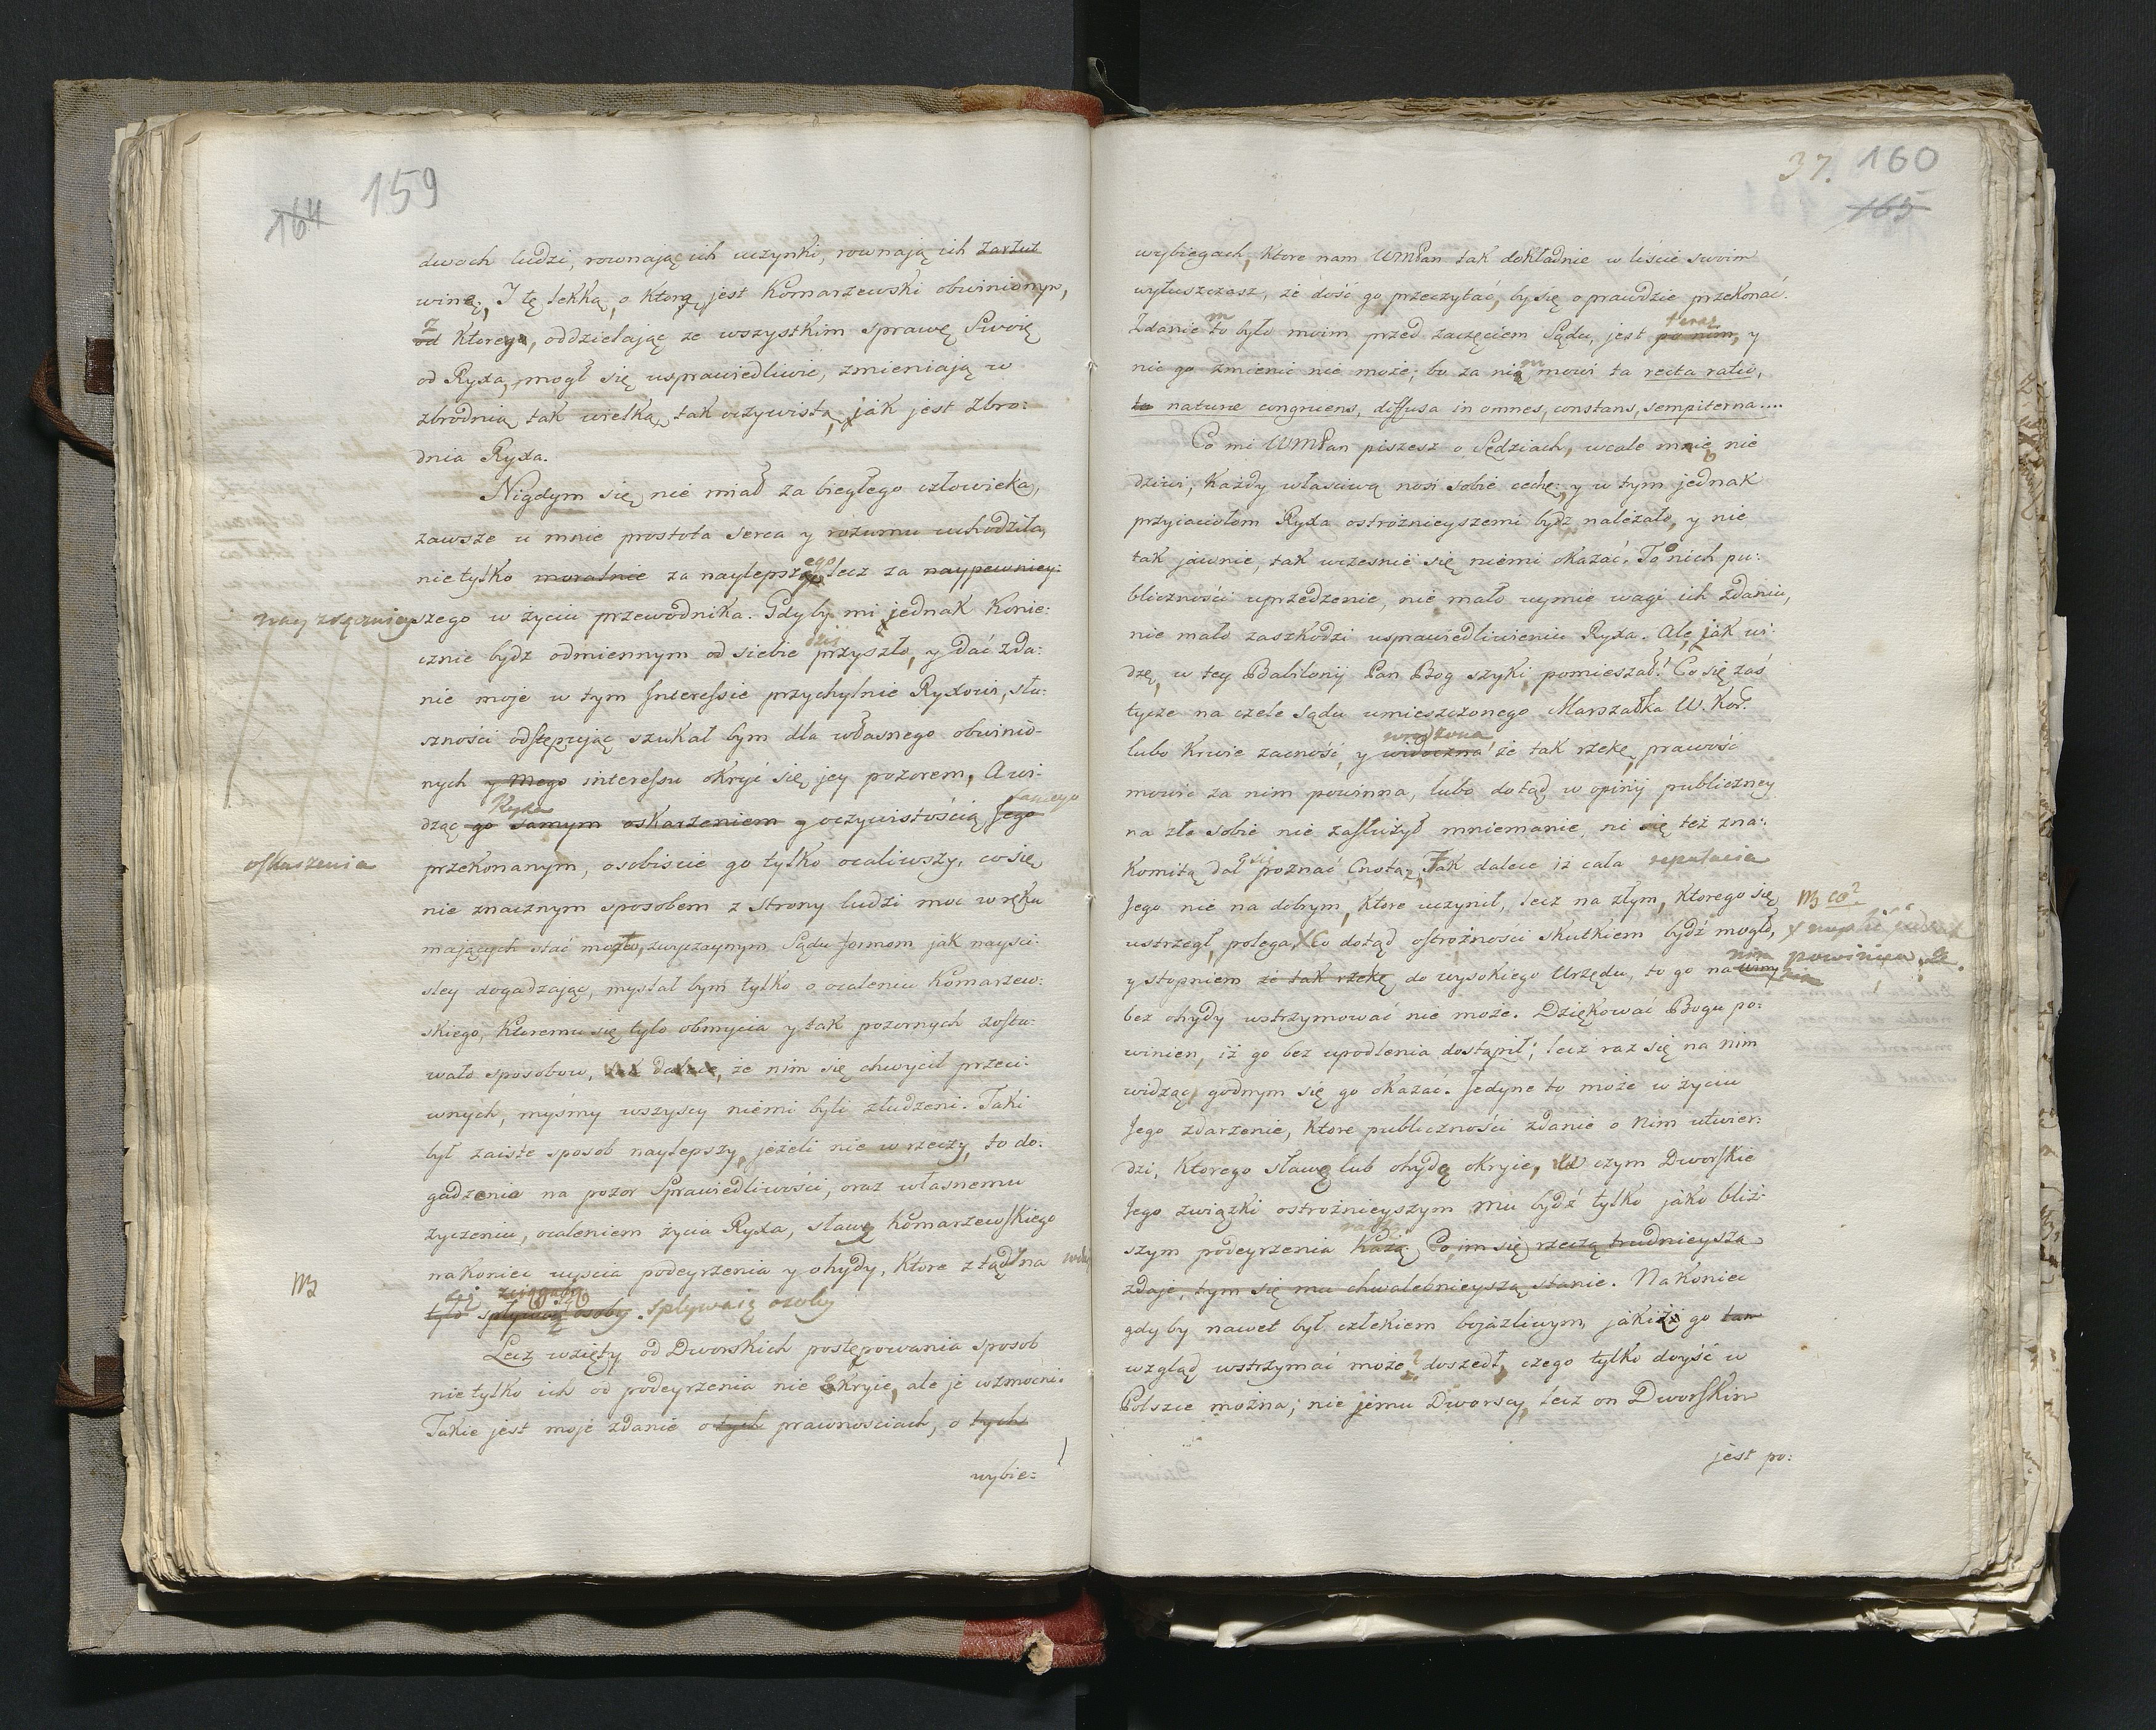 164 159
dwoch ludzi, rownając ich uczynki, rownają ich zarzut
winę, I tę lekką, o ktorą jest Komarzewski obwinionym,
z
od ktorego, oddzielając ze wszystkim sprawę Swoię
od Ryxa, mogł się usprawiedliwić, zmieniają w
zbrodnią tak wielką, tak oczywistą, jak jest zbro:
dnia Ryxa.
Nigdym się nie miał za biegłego człowieka,
zawsze u mnie prostota serca y rozumu uchodziła,
nie tylko moralnie za naylepszego lecz za naypewniey:
szego w życiu przewodnika. Gdyby mi jednak konie:
dziś
cznie bydz odmiennym od siebie przyszło, y dać zda:
nie moje w tym Interessie przychylnie Ryxowi, słu:
szności odstępując szukał bym dla własnego obwinio-
nych y Mego interessu okryć się jey pozorem, A wi-
Ryxa samego
dząc go samym oskarzeniem y oczywistością Jego
ogłuszenia
przekonanym, osobiście go tylko ocaliwszy, co się
nie znacznym sposobem z strony ludzi moc w ręku
mających stać mogło, zwyczaynym Sądu formom jak nayści:
sley dogadzając, myslał bym tylko o ocaleniu Komarzew:
skiego, ktoremu się tylo obmycia y tak pozornych zosta:
wało sposobow, że nim się chwycił przeci:
wnych, myśmy wszyscy niemi byli złudzeni. Taki
był zaiste sposob naylepszy, jeżeli nie w rzeczy, to do:
gadzenia na pozor Sprawiedliwości, oraz własnemu
życzeniu, ocaleniem życia Ryxa, sławę Komarzewskiego
nakoniec uyscia podeyrzenia y ohydy, ktore ztąd na
tylo spływają osoby. spływaią osoby
Lecz wzięty od Dworskich postępowania sposob
nie tylko ich od podeyrzenia nie okryie, ale je wzmocni.
Takie jest moje zdanie o tych prawnościach, o tych
wybie:
37. 160
165
wybiegach, ktore nam WMPan tak dokładnie w liście swoim
wyłuszczasz, że dość go przeczytać, by się o prawdzie przekonać.
teraz
Zdanie to było moim przed zaczęciem Sądu, jest po nim, y
nic go zmienić nie może; bo za nią mowi ta recta ratio,
naturæ congruens, diffusa in omnes, constans, sempiterna....
Co mi WMPan piszesz o Sędziach, wcale mnie nie
dziwi, każdy właściwą nosi sobie cechę; y w tym jednak
przyiaciołom Ryxa ostrożnieyszemi bydz należało, y nie
tak jawnie, tak wcześnie się niemi okazać. To o nich pu:
bliczności uprzedzenie, nie mało uymie wagi ich zdaniu,
nie mało zaszkodzi usprawiedliwieniu Ryxa. Ale, jak wi-
dzę, w tey Babilonij Pan Bog szyki pomieszał! Co się zaś
tycze na czele sądu umieszczonego Marszałka W. Kor.
wrodzona
lubo krwie zacność, y widoczna że tak rzekę, prawość
mowić za nim powinna, lubo dotąd w opinij publiczney
na złe sobie nie zasłużył mniemanie, ni się też zna:
się
komitą dał poznać Cnotą, Tak dalece iż cała reputacia
Jego nie na dobrym, ktore uczynił, lecz na złym, ktorego się
ustrzegł, polega, Co dotąd ostrożności skutkiem bydź mogło,
y stopniem że tak rzekę do wysokiego Urzędu, to go na
bez ohydy wstrzymować nie może. Dziękować Bogu po:
winien, iż go bez upodlenia dostąpił; lecz raz się na nim
widząc, godnym się go okazać. Jedyne to może w życiu
Jego zdarzenie, ktore publiczności zdanie o Nim utwier:
dzi, ktorego sławą lub ohydą okryie, w czym Dworskie
Jego związki ostrożnieyszym mu bydź tylko jako bliż-
szym podeyrzenia każą. Co im się rzeczą trudnieyszą
zdaje, tym się mu chwalebnieyszą stanie. Nakoniec
gdyby nawet był człekiem bojaźliwym, jakiż go tam
wzgląd wstrzymać może? doszedł, czego tylko doyść w
Polszcie można; nie jemu Dworscy, lecz on Dworskim
jest po: